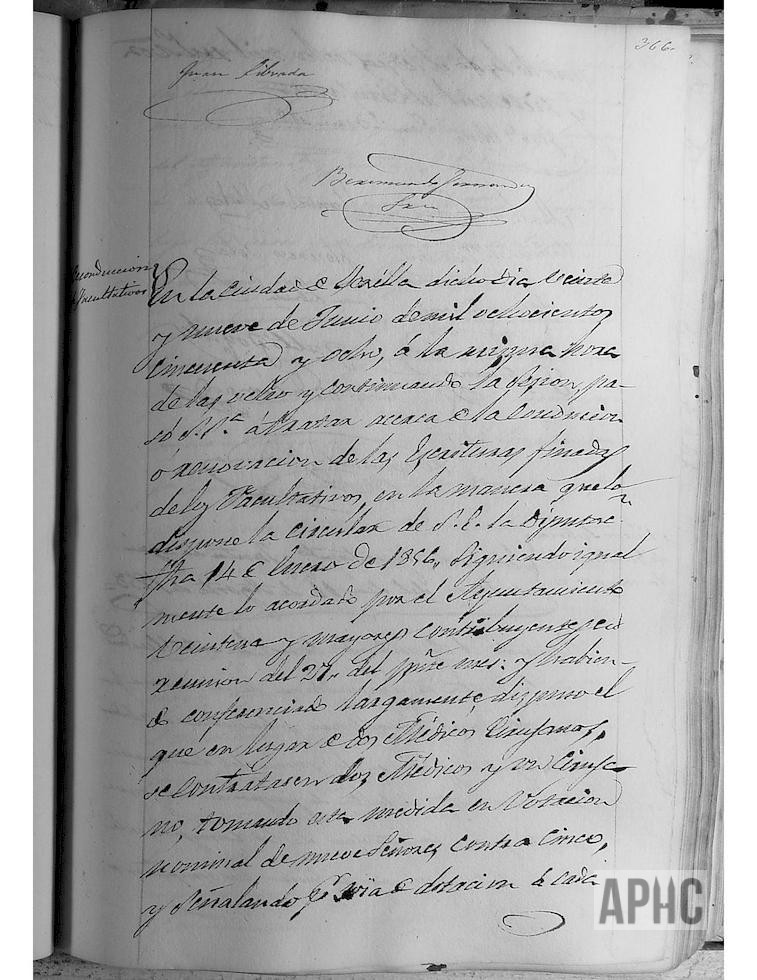 366.
Juan Librada
Veremundo Fernandez
Conduccion
Facultativos
En la Ciudad de dicho dia Veinte
y nueve de Junio de mil ochocientos
Cincuenta y ocho, á la misma hora
de las ocho y continuando la sesion, pa-
só S.S.ª á tratar acerca de la Conduccion
ó renovacion de las Escrituras finadas
de los Facultativos, en la manera que lo
dispone la circular de S.E. la Diputac.ⁿ
fha 14 de Enero de 1856, siguiendo igual
mente lo acordado por el Ayuntamiento
Veintena y mayores contribuyentes en
reunion del 27 del pñte mes: y habien-
do conferenciado largamente, dispuso el
que en lugar de dos Médicos Cirujanos,
se contratasen dos Médicos y un Ciruja-
no, tomando esta medida en Votacion
nominal de nueve Señores contra Cinco,
y señalando de dotacion á cada
APHC